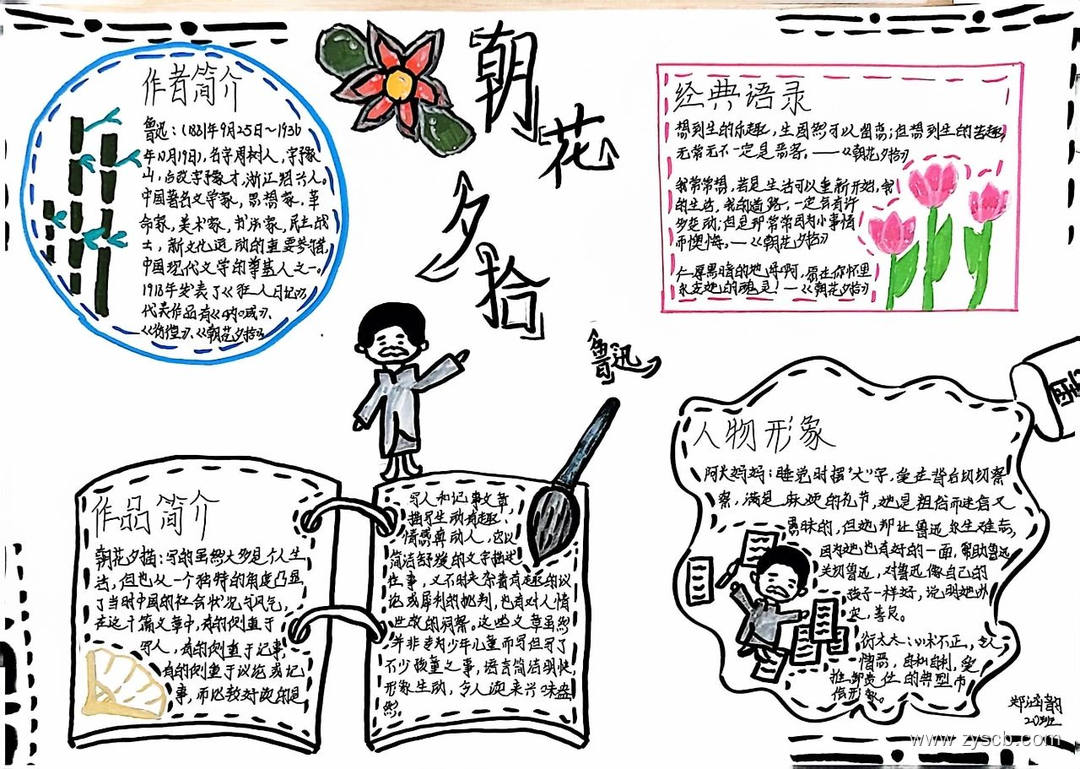 朝花夕拾
鲁迅
作者简介
鲁迅：(1881年9月25日～1936
年10月19日)，名字周树人，字豫
山，后改字豫才，浙江绍兴人。
中国著名文学家，思想家，革
命家，美术家，书法家，民主战
士，新文化运动的重要参与者，
中国现代文学的奠基人之一。
1918年发表了《狂人日记》，
代表作品有《呐喊》、
《彷徨》、《朝花夕拾》
经典语录
想到生的乐趣，生固然可以留恋；但想到生的苦趣，
无常无不一定是恶客。——《朝花夕拾》
我常常想，若是生活可以重新开始，我
的生活，我的道路，一定会有许
多变动；但是那常常因为小事情
而懊悔。——《朝花夕拾》
仁厚黑暗的地母啊，愿在你怀里
永安她的魂灵！——《朝花夕拾》
作品简介
朝花夕拾：写的虽然大多是个人生
活，但也从一个独特的角度凸显
了当时中国的社会状况与风气，
在这十篇文章中，有的侧重于
写人，有的侧重于记事，
有的侧重于议论或记
事，而比较好读的是
写人和记事文章，
描写生动有趣，
情感真动人，它以
简洁舒缓的文字描述
往事，又不时夹杂着有趣的议
论或犀利的批判，也有对人情
世故的洞察。这些文章虽然
并非专为少年儿童而写但写了
不少孩童之事，语言简洁明快，
形象生动，令人读来兴味盎
然。
人物形象
阿长妈妈：睡觉时摆“大”字，爱在背后切切察
察，满是麻烦的礼节，她是粗俗而迷信又
愚昧的，但她却让鲁迅永生难忘，
因为她也有好的一面，帮助鲁迅
关切鲁迅，对鲁迅像自己的
孩子一样好，说明她朴
实，善良。
衍太太：心术不正，令人
憎恶，自私自利，爱
推卸责任的典型市
侩形象。
www.zyscb.com